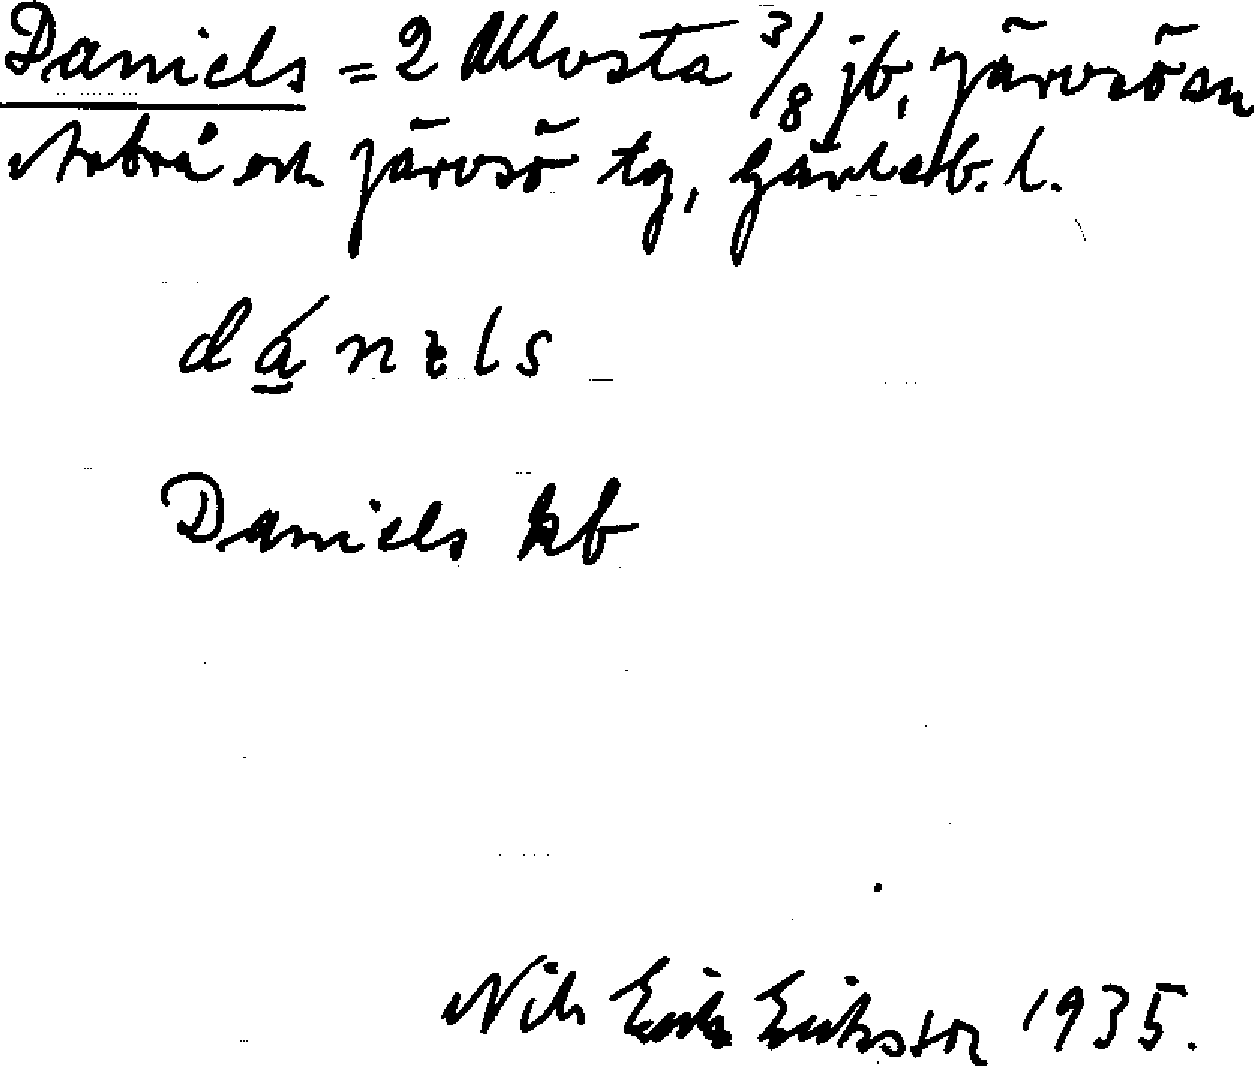 Daniels = 2 Ullvsta 3/8 jb, Järvsö sn
Arbrå och Järvsö tg, Gävleb. l.
Daniels kb
Nils Erik Eriksson 1935.